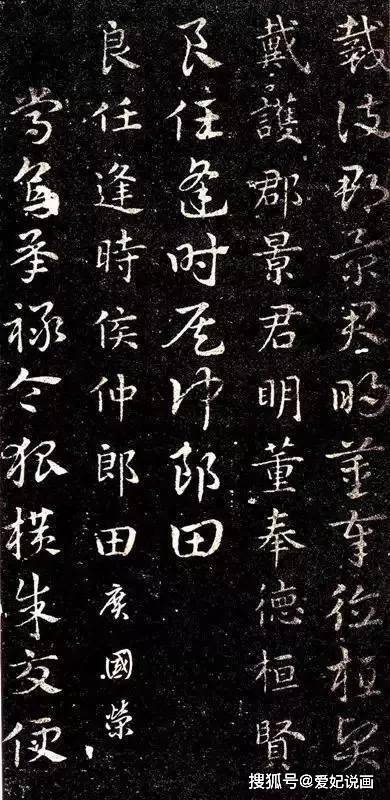 戴護郡景君明董奉德桓賢
戴護郡景君明董奉德桓賢
良任逢時侯仲郎田
良任逢時侯仲郎田廣國榮
常烏承祿令狐橫朱交便
搜狐号@爱妃说画